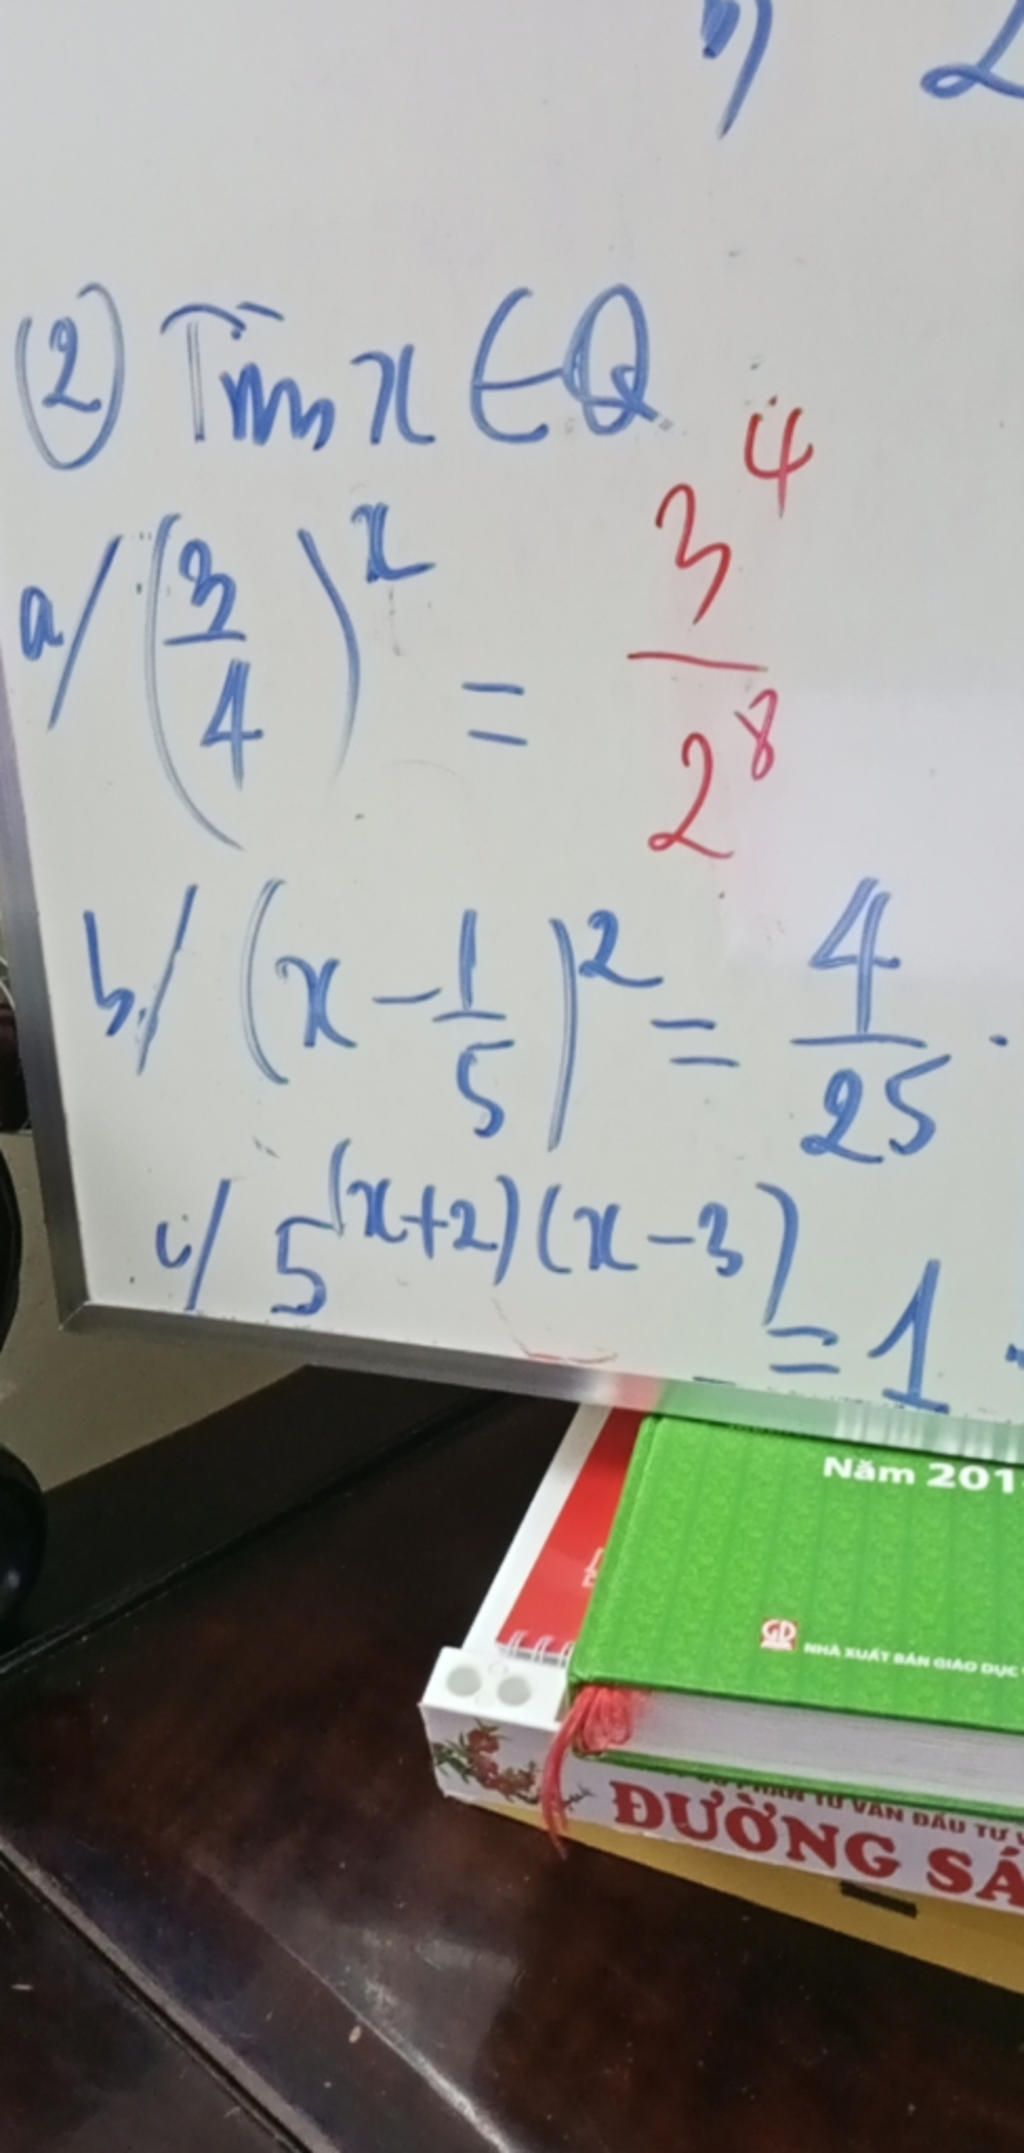 ② Tìm x ∈ Q
a/ (3/4)^x = 3^4/2^8
b/ (x - 1/5)^2 = 4/25.
c/ 5^(x+2)(x-3) = 1
Năm 201
GD NHÀ XUẤT BẢN GIÁO DỤC
PHẦN TƯ VẤN ĐẦU TƯ
ĐƯỜNG SÁ